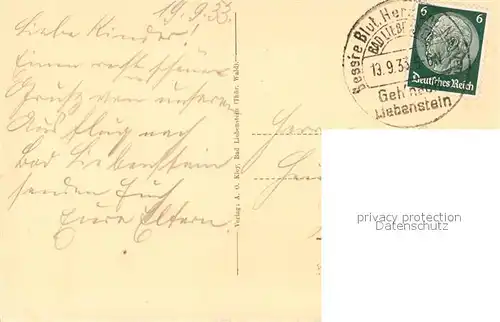 19.9.33
Liebe Kinder!
Einen recht schönen
Gruß von unserem
Ausflug nach
Bad Liebenstein
senden Euch
Eure Eltern.
Verlag: A. O. Kley, Bad Liebenstein (Thür. Wald).
Bessre Blut, Herz
BAD LIEBE
13.9.33
Geh n
Liebenstein
6 6
Deutsches Reich
privacy protection
Datenschutz